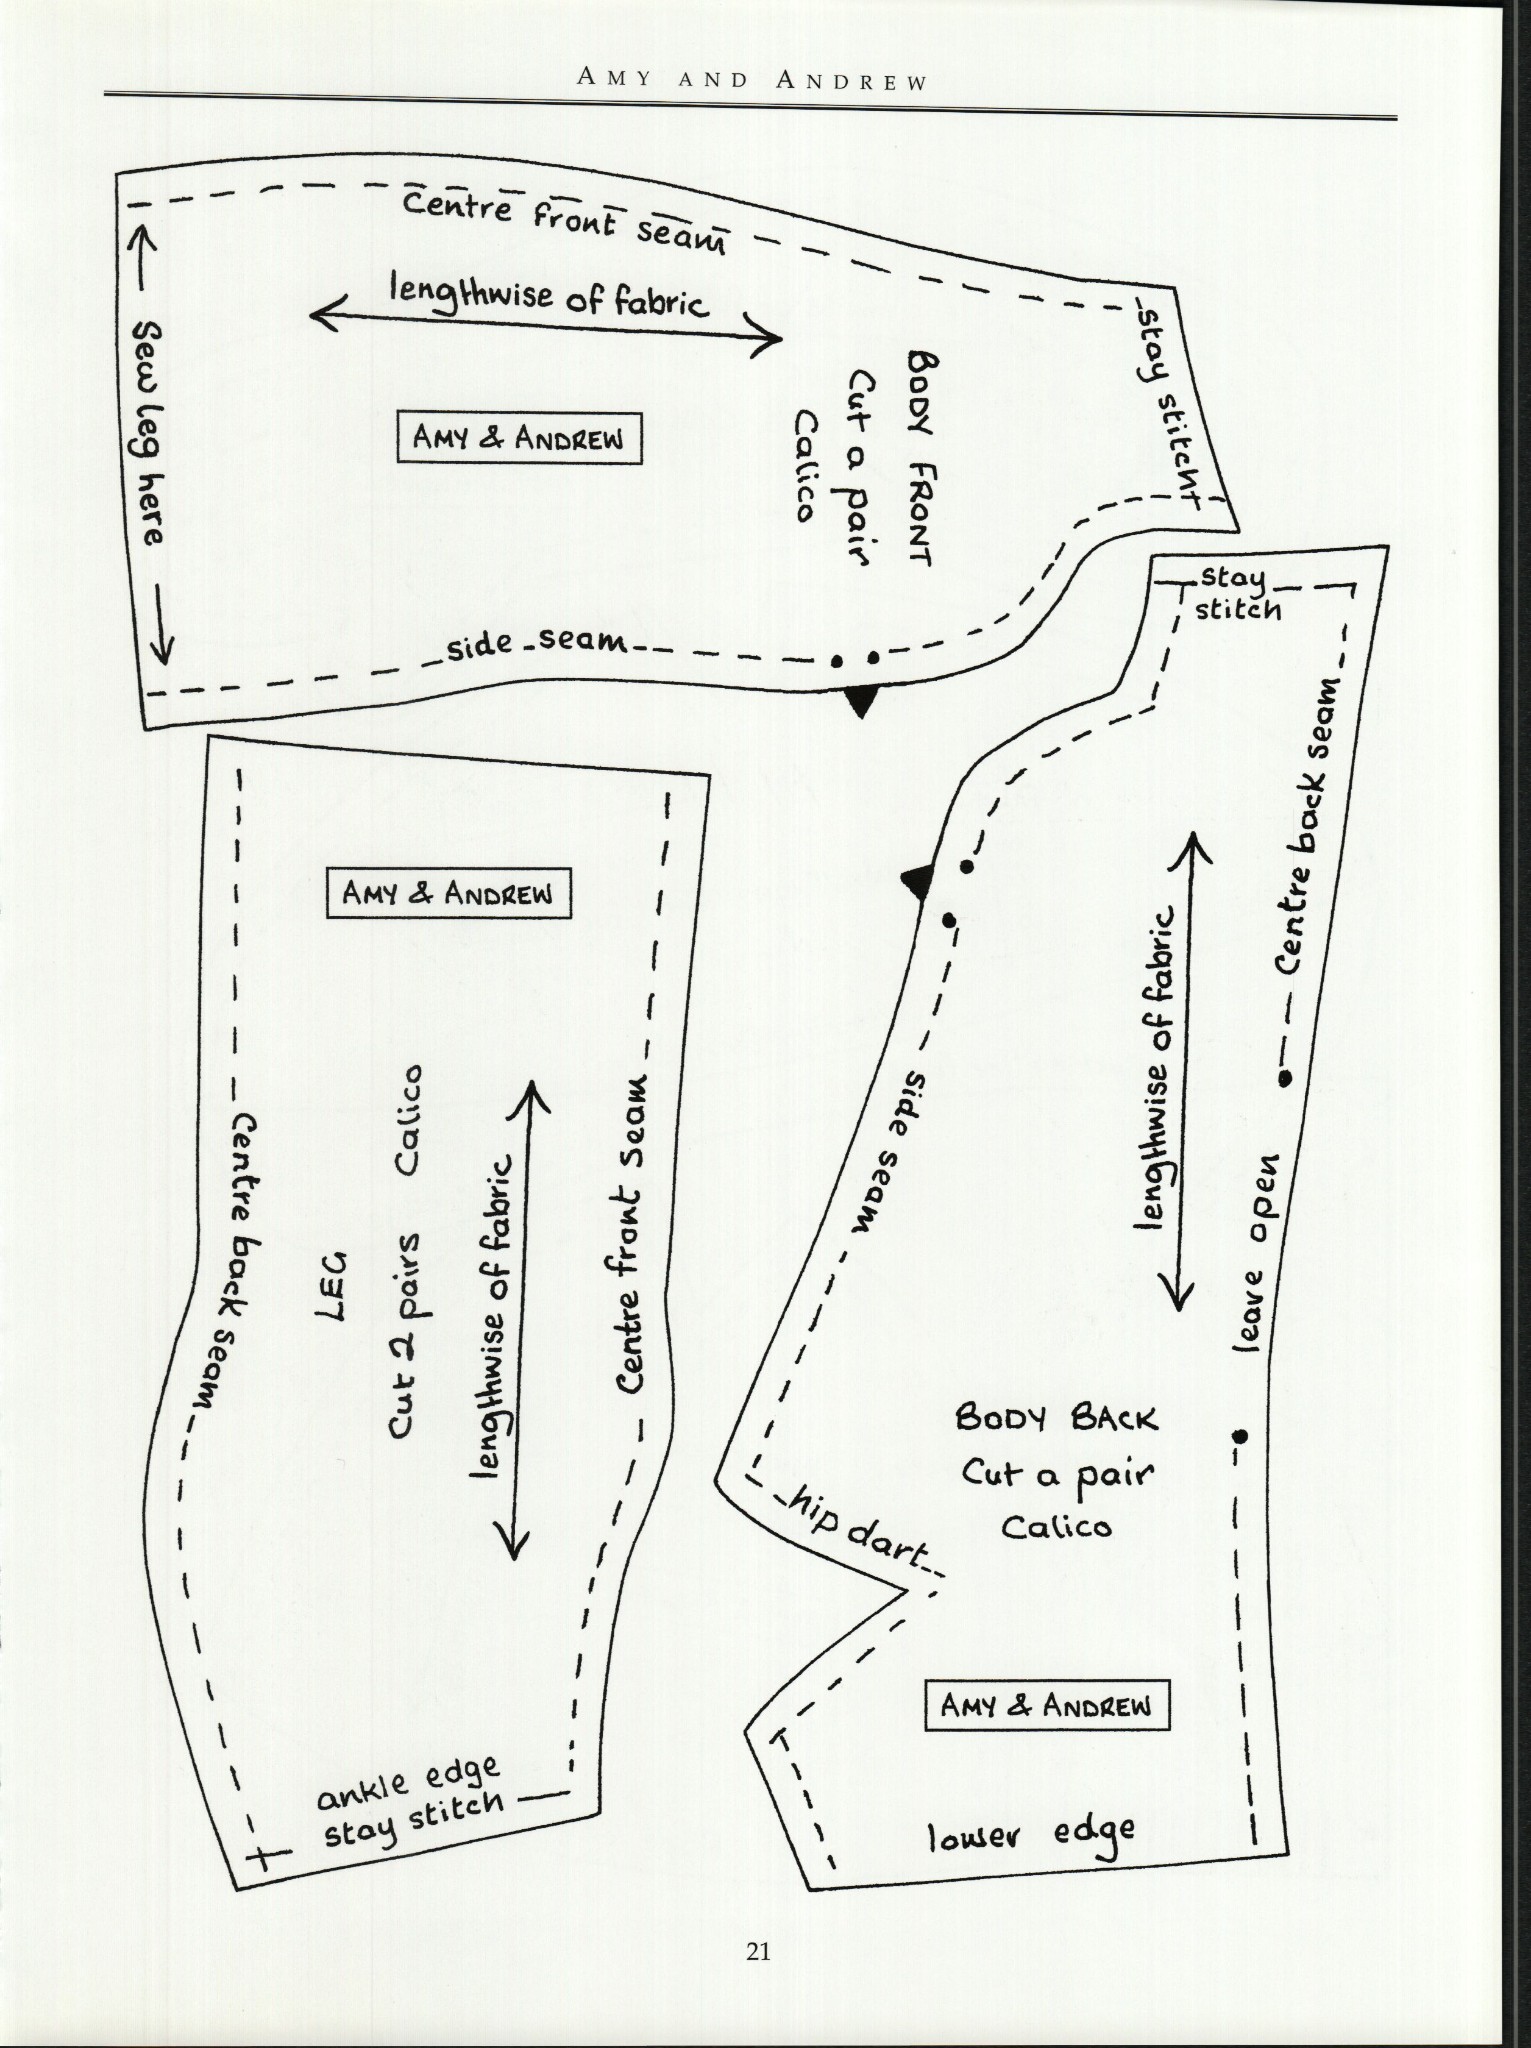 AMY AND ANDREW
Centre front seam
lengthwise of fabric
Sew leg here
AMY & ANDREW
BODY FRONT
Cut a pair
Calico
stay stitch
side seam
stay
stitch
Centre back seam
lengthwise of fabric
side seam
leave open
BODY BACK
Cut a pair
Calico
hip dart
AMY & ANDREW
lower edge
AMY & ANDREW
Centre back seam
LEG
Cut 2 pairs Calico
lengthwise of fabric
Centre front seam
ankle edge
stay stitch
21